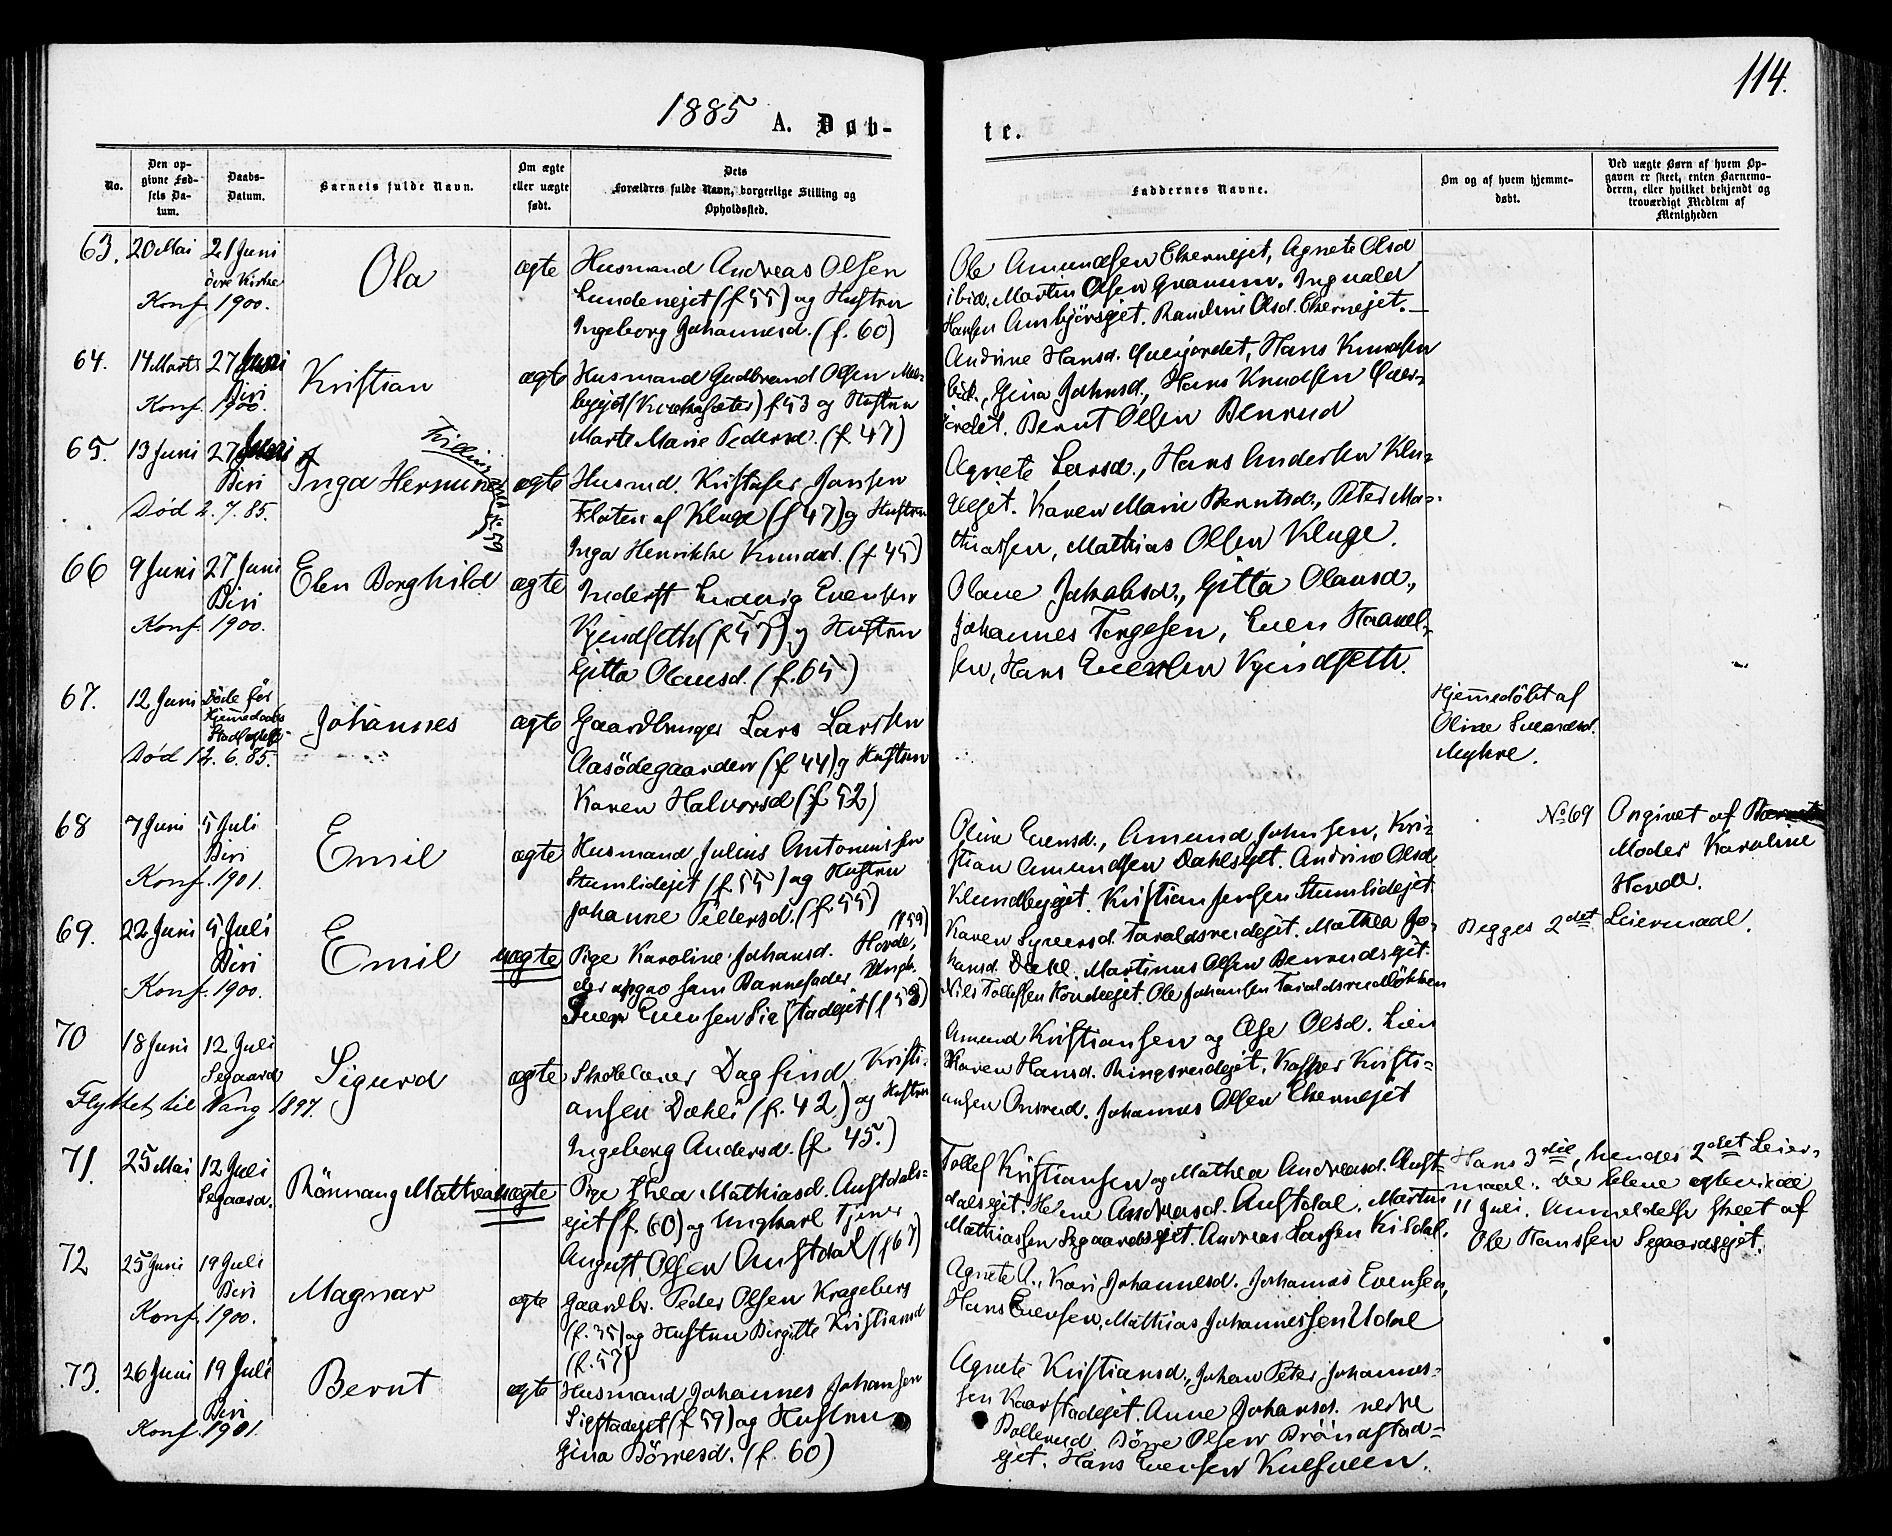 1885 A. Døb-
te.
114.
No.
Den op-
givne Fød-
sels Da-
tum.
Daabs-
Datum.
Barnets fulde Navn.
Om ægte
eller uægte
født.
Dets
Forældres fulde Navn, borgerlige Stilling og
Opholdssted.
Faddernes Navne.
Om og af hvem hjemme-
døbt.
Ved uægte Børn af hvem Op-
gaven er skeet, enten Barnemo-
deren, eller hvilket bekjendt og
troværdigt Medlem af
Menigheden
63. 20 Mai 21 Juni
Kirke
Konf. 1900.
Ola
ægte
Husmand Andreas Olsen
Lundeejet (f. 55) og Hustru
Ingeborg Johannesd. (f. 60)
Ole Amundsen Ekernejet, Agnete Olsd
ibid. Martin Olsen Granum. Ingvald
Hansen Ambjörsejet. Randine Olsd. Ekernejet.
64. 14 Marts 27 Juni
Biri
Konf. 1900.
Kristian
ægte
Husmand Gudbrand Olsen
f 53 og Hustru
Marte Marie Pedersd. (f. 47)
Andrine Hansd. Querjordet, Hans Knudsen
ibid., Gina Johnsd., Hans Knudsen Quer-
jordet. Bernt Olsen Benrud
65. 13 Juni 27 Juni
Biri
Død 2. 7. 85.
Inga Hermine
Tvilling
No 59
ægte
Husmd. Kristofer Jansen
Floten af Kluge (f 47) og Hustru
Inga Henrikke Knudsd. (f 45)
Agnete Larsd., Hans Andersen Klu-
geejet. Karen Marie Berntsd., Peter Ma-
thiassen, Mathias Olsen Kluge.
66 9 Juni 27 Juni
Biri
Konf. 1900.
Elen Borghild
ægte
Inderst Ludvig Evensen
Vejndseth (f 57) og Hustru
Gitta Olausd. (f. 65)
Olave Jakobsd., Gitta Olausd.,
Johannes Torgesen, Even Haavel-
sen, Hans Evensen
67. 12 Juni Døde før
Hjemmedaabs
Stadfæstelse
Død 12. 6. 85.
Johannes
ægte
Gaardbruger Lars Larsen
Aasödegaarden (f 44) og Hustru
Karen Halvorsd (f 52)
Hjemmedöbt af
Oline Svendsd.
Myhre.
68 7 Juni 5 Juli
Biri
Konf. 1901.
Emil
ægte
Husmand Julius Antoniussen
Stumlidejet (f. 55) og Hustru
Johanne Pedersd. (f. 55)
Oline Evensd., Amund Johnsen, Kri-
stian Amundsen Dahlsejet. Andrine Olsd.
Klundbyejet. Kristian Jensen Stumlidejet.
No 69 Angivet af
Moder Karoline
Hovde.
69. 22 Juni 5 Juli
Biri
Konf. 1900.
Emil
uægte
Pige Karoline Johansd. Hovde, (f 59)
der opgav som Barnefader Ungk.
Iver Evensen Sigstadejet (f 58)
Karen Syversd. Taraldsrudejet. Mathea Jo-
hansd. Dæhl. Martinus Olsen Benrudsejet.
Nils Tollefsen Hovdeejet. Ole Johansen Taraldsrudlökken
Begges 2det Leiermaal.
70 18 Juni 12 Juli
Segaard
Flyttet til Vang 1897.
Sigurd
ægte
Skolelærer Dagfind Kristi-
ansen Dæhli (f. 42.) og Hustru
Ingeborg Andersd. (f 45.)
Amund Kristiansen og Åse Olsd. Lien
Karen Hansd. Ringsrudejet, Kasper Kristi-
ansen Onsrud. Johannes Olsen Ekernejet
71. 25 Mai 12 Juli
Segaard.
Rönnaug Mathea
uægte
Pige Thea Mathiasd. Austdals-
ejet (f. 60) og Ungkarl Tjener
August Olsen Austdal (f 67)
Tollef Kristiansen og Mathea Andreasd. Aust-
dalsejet. Helene Andreasd. Austdal, Martin
Mathiassen Segaardsejet. Andreas Larsen Kildal.
Hans 3die, hendes 2det Leier-
maal. De bleve egteviede
11 Juli. Anmeldelse skeet af
Ole Hanssen Segaardsejet.
72 25 Juni 19 Juli
Biri
Konf. 1900.
Magnar
ægte
Gaardbr. Peder Olsen Krageberg
(f. 35) og Hustru Birgitte Kristiansd
(f. 57)
Agnete A., Kari Johannesd. Johannes Evensen,
Hans Evensen, Mathias Johannessen Udal
73. 26 Juni 19 Juli
Biri
Konf. 1901.
Bernt
ægte
Husmand Johannes Johansen
Sigstadejet (f 59) og Hustru
Gina Börresd. (f. 60)
Agnete Kristiansd., Johan Peter Johannes-
sen Kaarstadejet. Anne Johansd. nedre
Bollerud. Börre Olsen Bröndstad-
ejet. Hans Evensen Kulsveen.